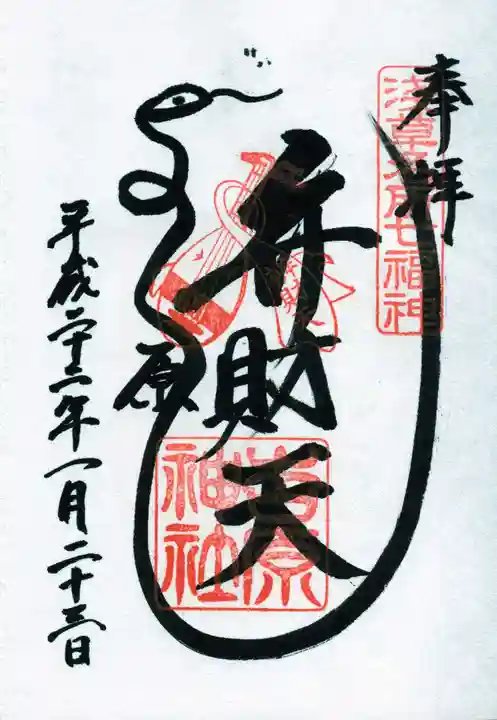 奉拝
浅草名所七福神
弁財天
吉原神社
原
平成二十二年一月二十三日